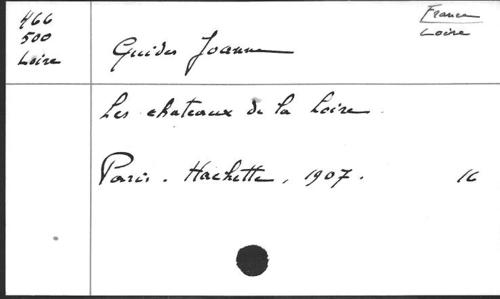 466
500
Loire
France
Loire
Guides Joanne
Les chateaux de la Loire.
Paris. Hachette, 1907. 16